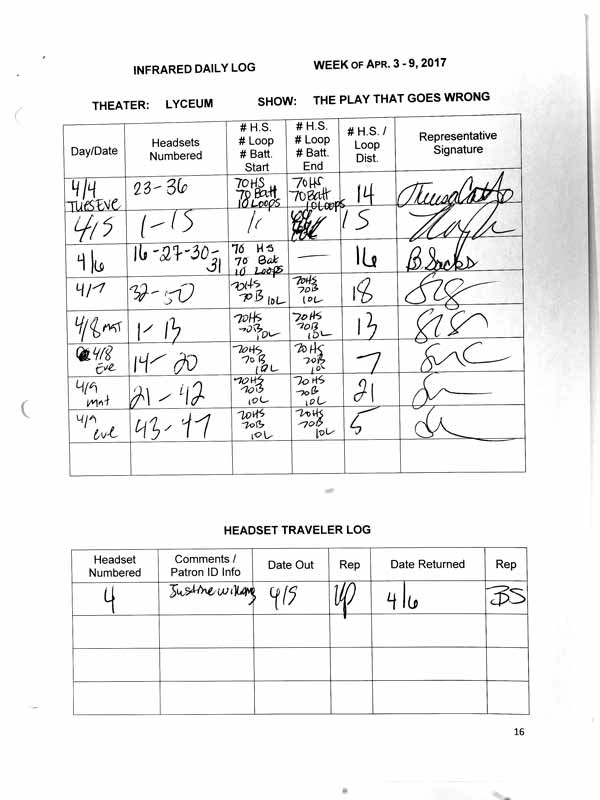 INFRARED DAILY LOG WEEK OF APR. 3 - 9, 2017
THEATER: LYCEUM SHOW: THE PLAY THAT GOES WRONG
Day/Date
Headsets Numbered
# H.S. # Loop # Batt. Start
# H.S. # Loop # Batt. End
# H.S. / Loop Dist.
Representative Signature
4/4 Tues Eve 23-36 70 HS 70 Batt 10 Loops 70 HS 70 Batt 10 Loops 14
4/5 1-15 15
4/6 16-27-30-31 70 HS 70 Bat 10 Loops — 16 B Sacks
4/7 32-50 70HS 70B 10L 70HS 70B 10L 18
4/8 MAT 1-13 70HS 70B 10L 70HS 70B 10L 13
4/8 Eve 14-20 70HS 70B 10L 70HS 70B 10L 7
4/9 mat 21-42 70HS 70B 10L 70HS 70B 10L 21
4/9 eve 43-47 70HS 70B 10L 70HS 70B 10L 5
HEADSET TRAVELER LOG
Headset Numbered
Comments / Patron ID Info
Date Out
Rep
Date Returned
Rep
4 Justine 4/5 4/6 BS
16